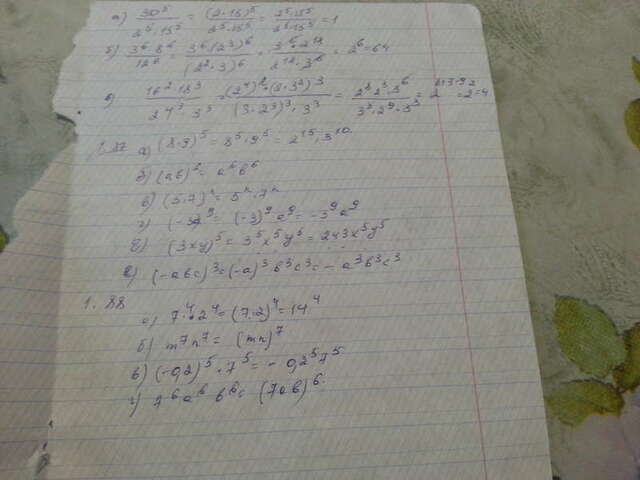 а) 30⁵/(2⁵·15⁵) = (2·15)⁵/(2⁵·15⁵) = 2⁵·15⁵/(2⁵·15⁵) = 1
б) 3⁶·8⁶/12⁶ = 3⁶·(2³)⁶/(2²·3)⁶ = 3⁶·2¹⁸/(2¹²·3⁶) = 2⁶ = 64
в) 16²·18³/(24³·3³) = (2⁴)²·(2·3²)³/((3·2³)³·3³) = 2⁸·2³·3⁶/(3³·2⁹·3³) = 2⁸⁺³⁻⁹ = 2² = 4
1.87 а) (8·9)⁵ = 8⁵·9⁵ = 2¹⁵·3¹⁰
б) (ab)⁶ = a⁶b⁶
в) (5·7)ⁿ = 5ⁿ·7ⁿ
г) (-3a)⁹ = (-3)⁹a⁹ = -3⁹a⁹
д) (3xy)⁵ = 3⁵x⁵y⁵ = 243x⁵y⁵
е) (-abc)³ = (-a)³b³c³ = -a³b³c³
1.88
а) 7⁴·2⁴ = (7·2)⁴ = 14⁴
б) m⁷n⁷ = (mn)⁷
в) (-0,2)⁵·7⁵ = -0,2⁵7⁵
г) 7⁶a⁶b⁶ = (7ab)⁶